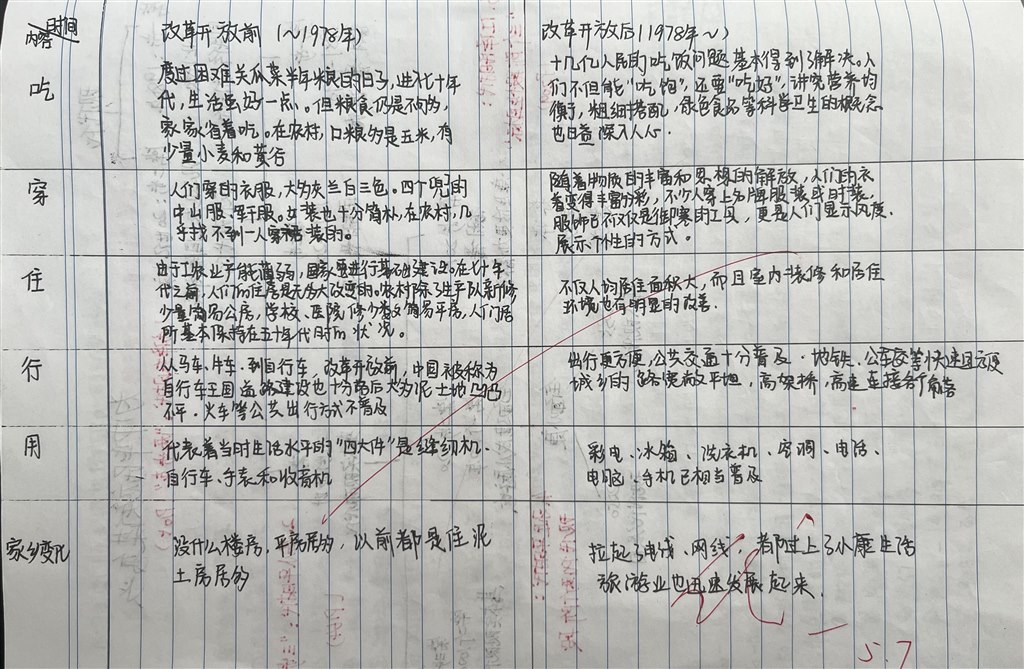 时间
内容
改革开放前（~1978年）
改革开放后（1978年~）
吃
度过困难关瓜菜半年粮的日子，进代十年
代，生活虽好一点、。但粮食仍是不够的，
家家省着吃。在农村，口粮多是玉米，有
少量小麦和黄谷
十几亿人民的吃饭问题基本得到了解决。人
们不但能"吃饱"，还要"吃好"，讲究营养均
衡，粗细搭配，绿色食品等科学卫生的观念
也日益深入人心.
穿
人们穿的衣服，大多灰兰白三色。四个兜的
中山服、军干服。女装也十分简朴，在农村，几
乎找不到一人穿 装的。
随着物质的丰富和思想的解放，人们的衣
着变得丰富多彩，不少人穿上名牌服装或时装，
服饰已不仅仅是御寒的工具，更是人们显示风度、
展示个性的方式。
住
由于工农业产能薄弱，国家要进行基础建设。在七十年
代之前，人们的住房是无多大改变的。农村除了生产队新修
少量简易公房，学校、医院修少数简易平房，人们居
所基本保持在五十年代时的状况。
不仅人均居住面积大，而且室内装修和居住
环境也有明显的改善.
行
从马车、牛车、到自行车，改革开放前，中国被称为
自行车王国道路建设也十分落后大多泥土地凹凸
不平，火车等公共出行方式不普及
出行更方便，公共交通十分普及.地铁、公车等快速且方便
城乡的路宽敞平坦，高架桥，高速连接各个
用
代表着当时生活水平的"四大件"是缝纫机、
自行车、手表和收音机
彩电、冰箱、洗衣机、空调、电话、
电脑、手机已相当普及
家乡变化
没什么楼房，平房居多，以前都是住泥
土房居多
拉起了电线、网线，都过上了小康生活
旅游业也迅速发展起来.
5.7